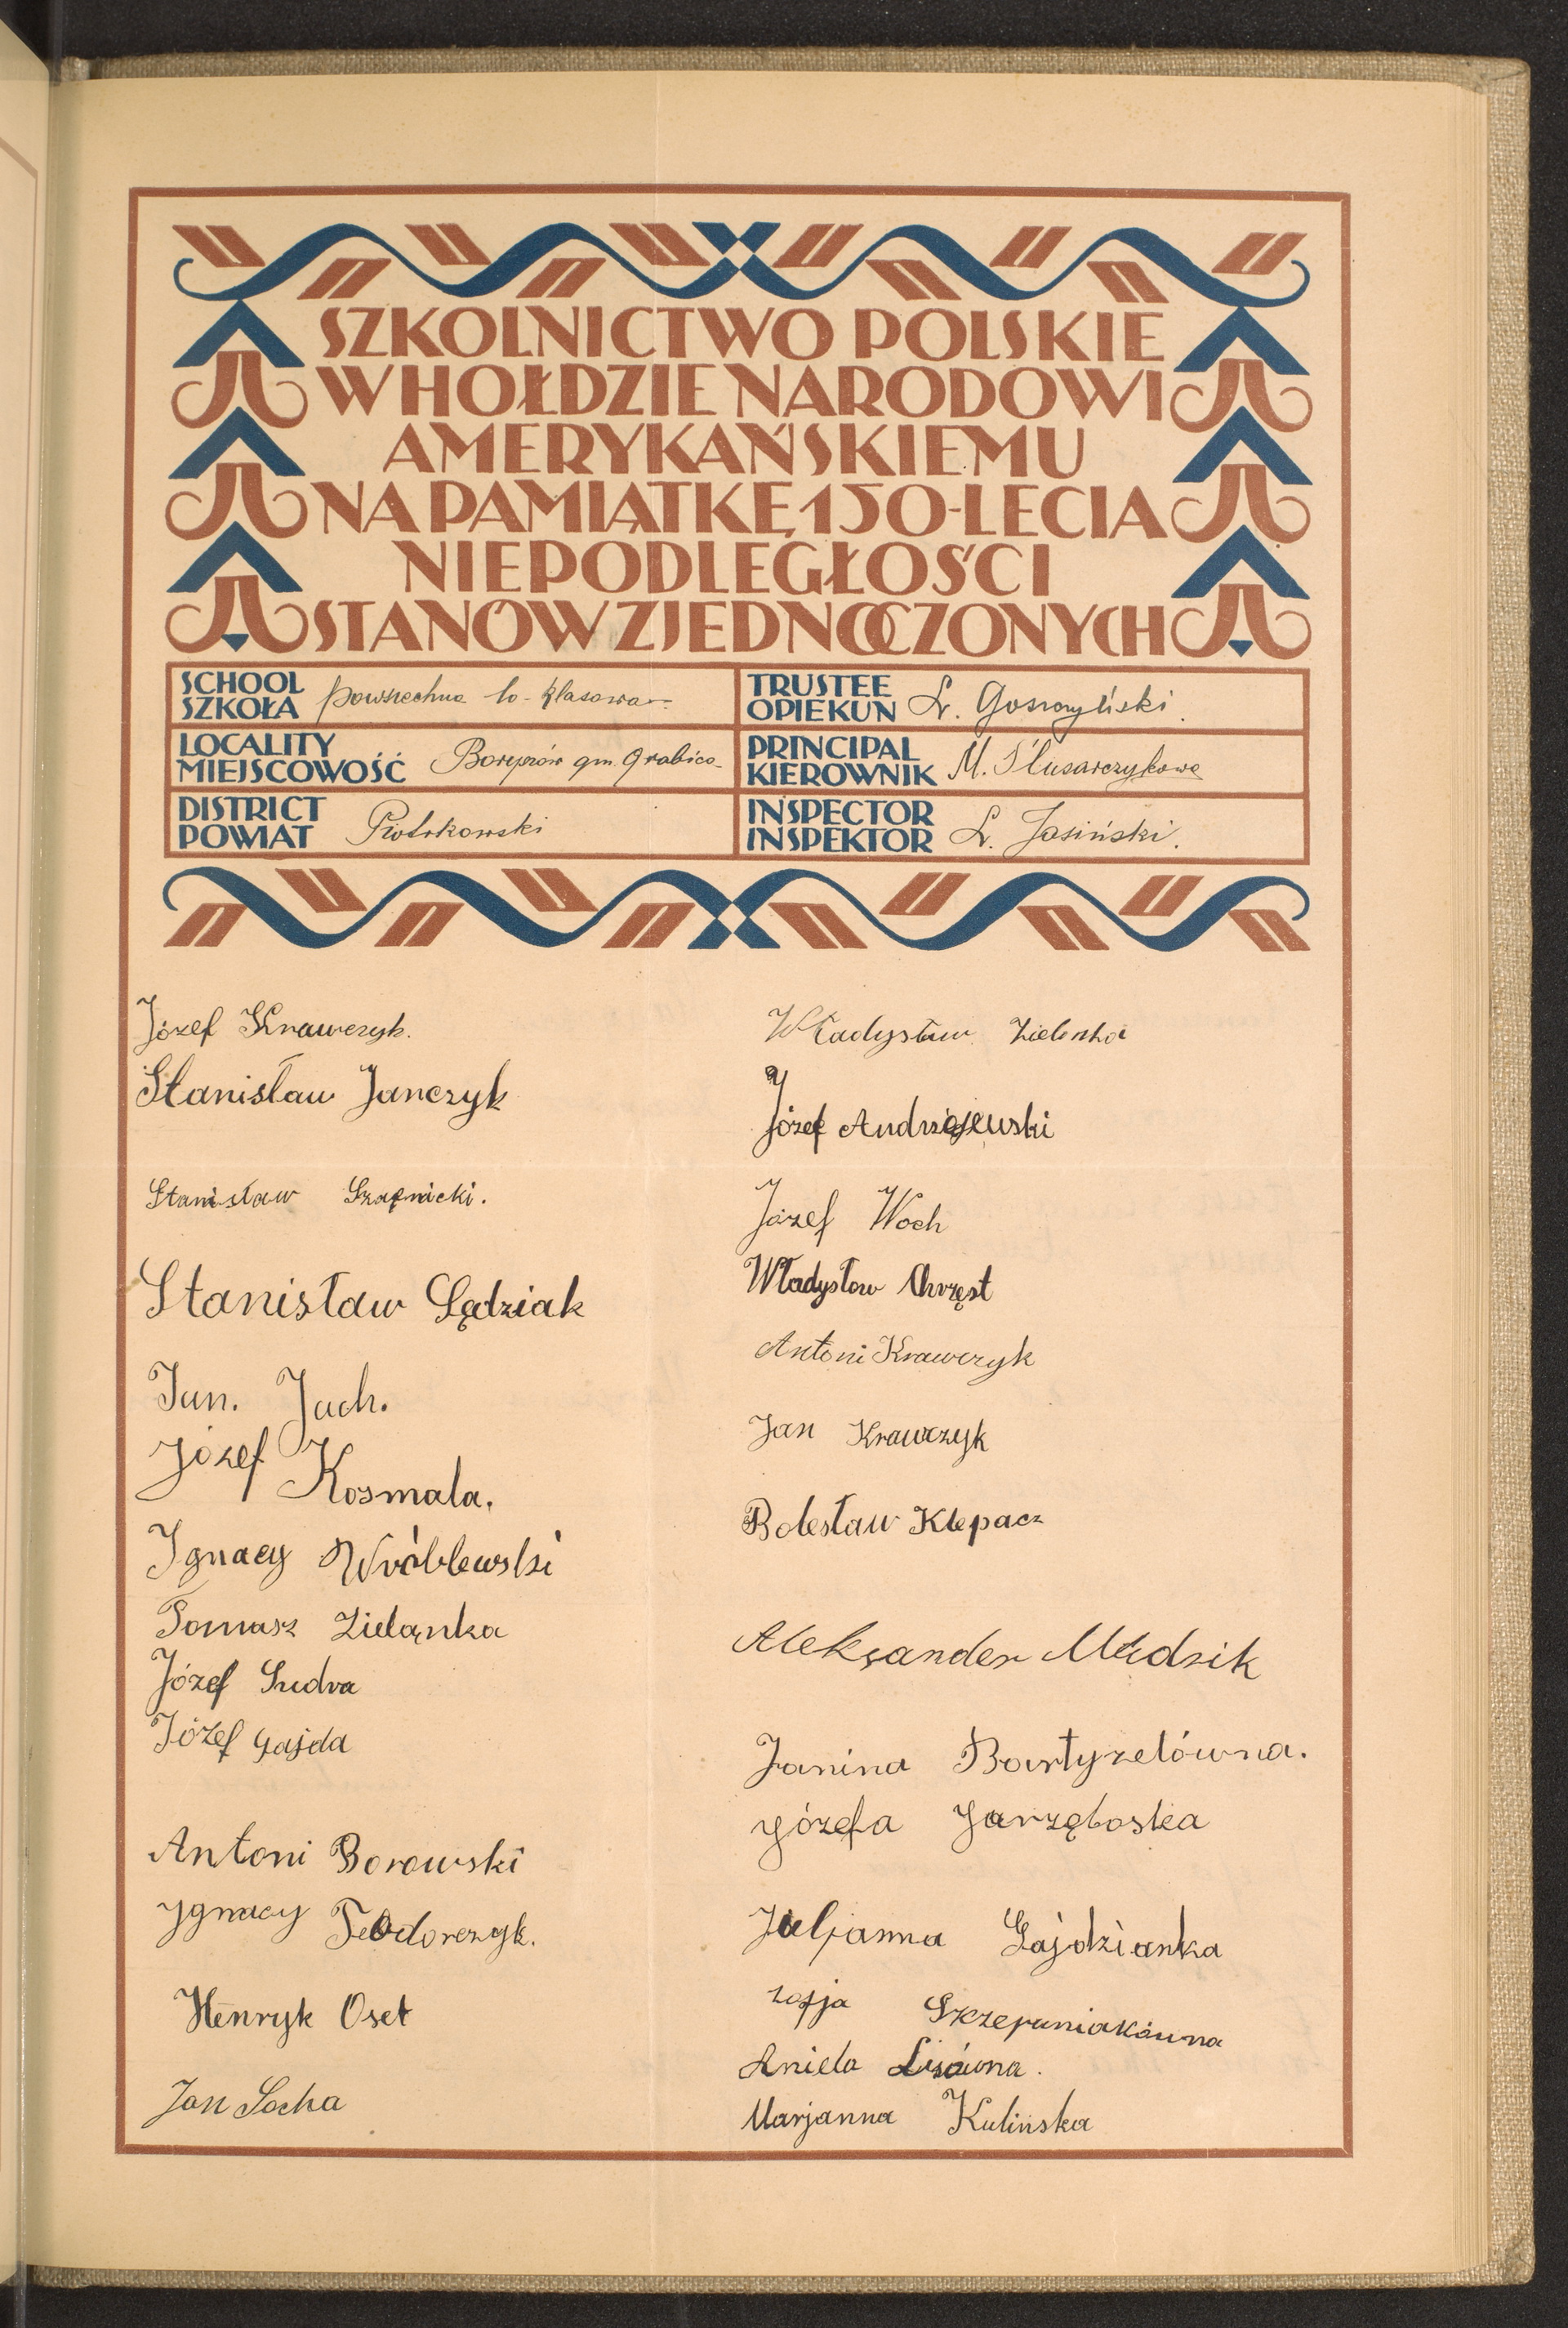 SZKOLNICTWO POLSKIE
W HOŁDZIE NARODOWI
AMERYKAŃSKIEMU
NA PAMIĄTKĘ 150-LECIA
NIEPODLEGŁOŚCI
STANÓW ZJEDNOCZONYCH
SCHOOL
SZKOŁA powszechna klasowa
TRUSTEE
OPIEKUN L. Goszczyński.
LOCALITY
MIEJSCOWOŚĆ gm. Grabica
PRINCIPAL
KIEROWNIK M. Ślusarczykowa
DISTRICT
POWIAT Piotrkowski
INSPECTOR
INSPEKTOR L. Jasiński.
Józef Krawczyk.
Stanisław Janczyk
Stanisław
Stanisław Sędziak
Jan. Jach.
Józef Kosmala.
Ignacy Wróblewski
Tomasz Zielonka
Józef Sudra
Józef Gajda
Antoni Borowski
Ygnacy Teodorczyk.
Henryk Oset
Jan Socha
Władysław Zielonka
J
Józef Andrzejewski
Józef Woch
Władysław Chrzęst
Antoni Krawczyk
Jan Krawczyk
Bolesław Klepacz
Aleksander Madzik
Janina Bartyzelówna.
Józefa Jarzęboska
Juljanna Gajdzianka
Zofja Szczepaniakówna
Aniela Lisówna.
Marjanna Kulińska